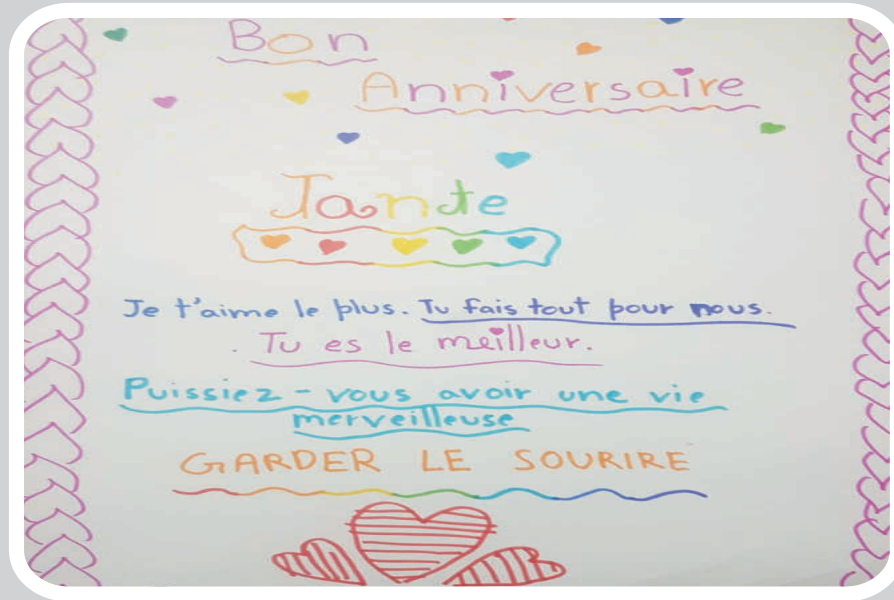 Bon
Anniversaire
Tante
Je t'aime le plus. Tu fais tout pour nous.
Tu es le meilleur.
Puissiez-vous avoir une vie
merveilleuse
GARDER LE SOURIRE